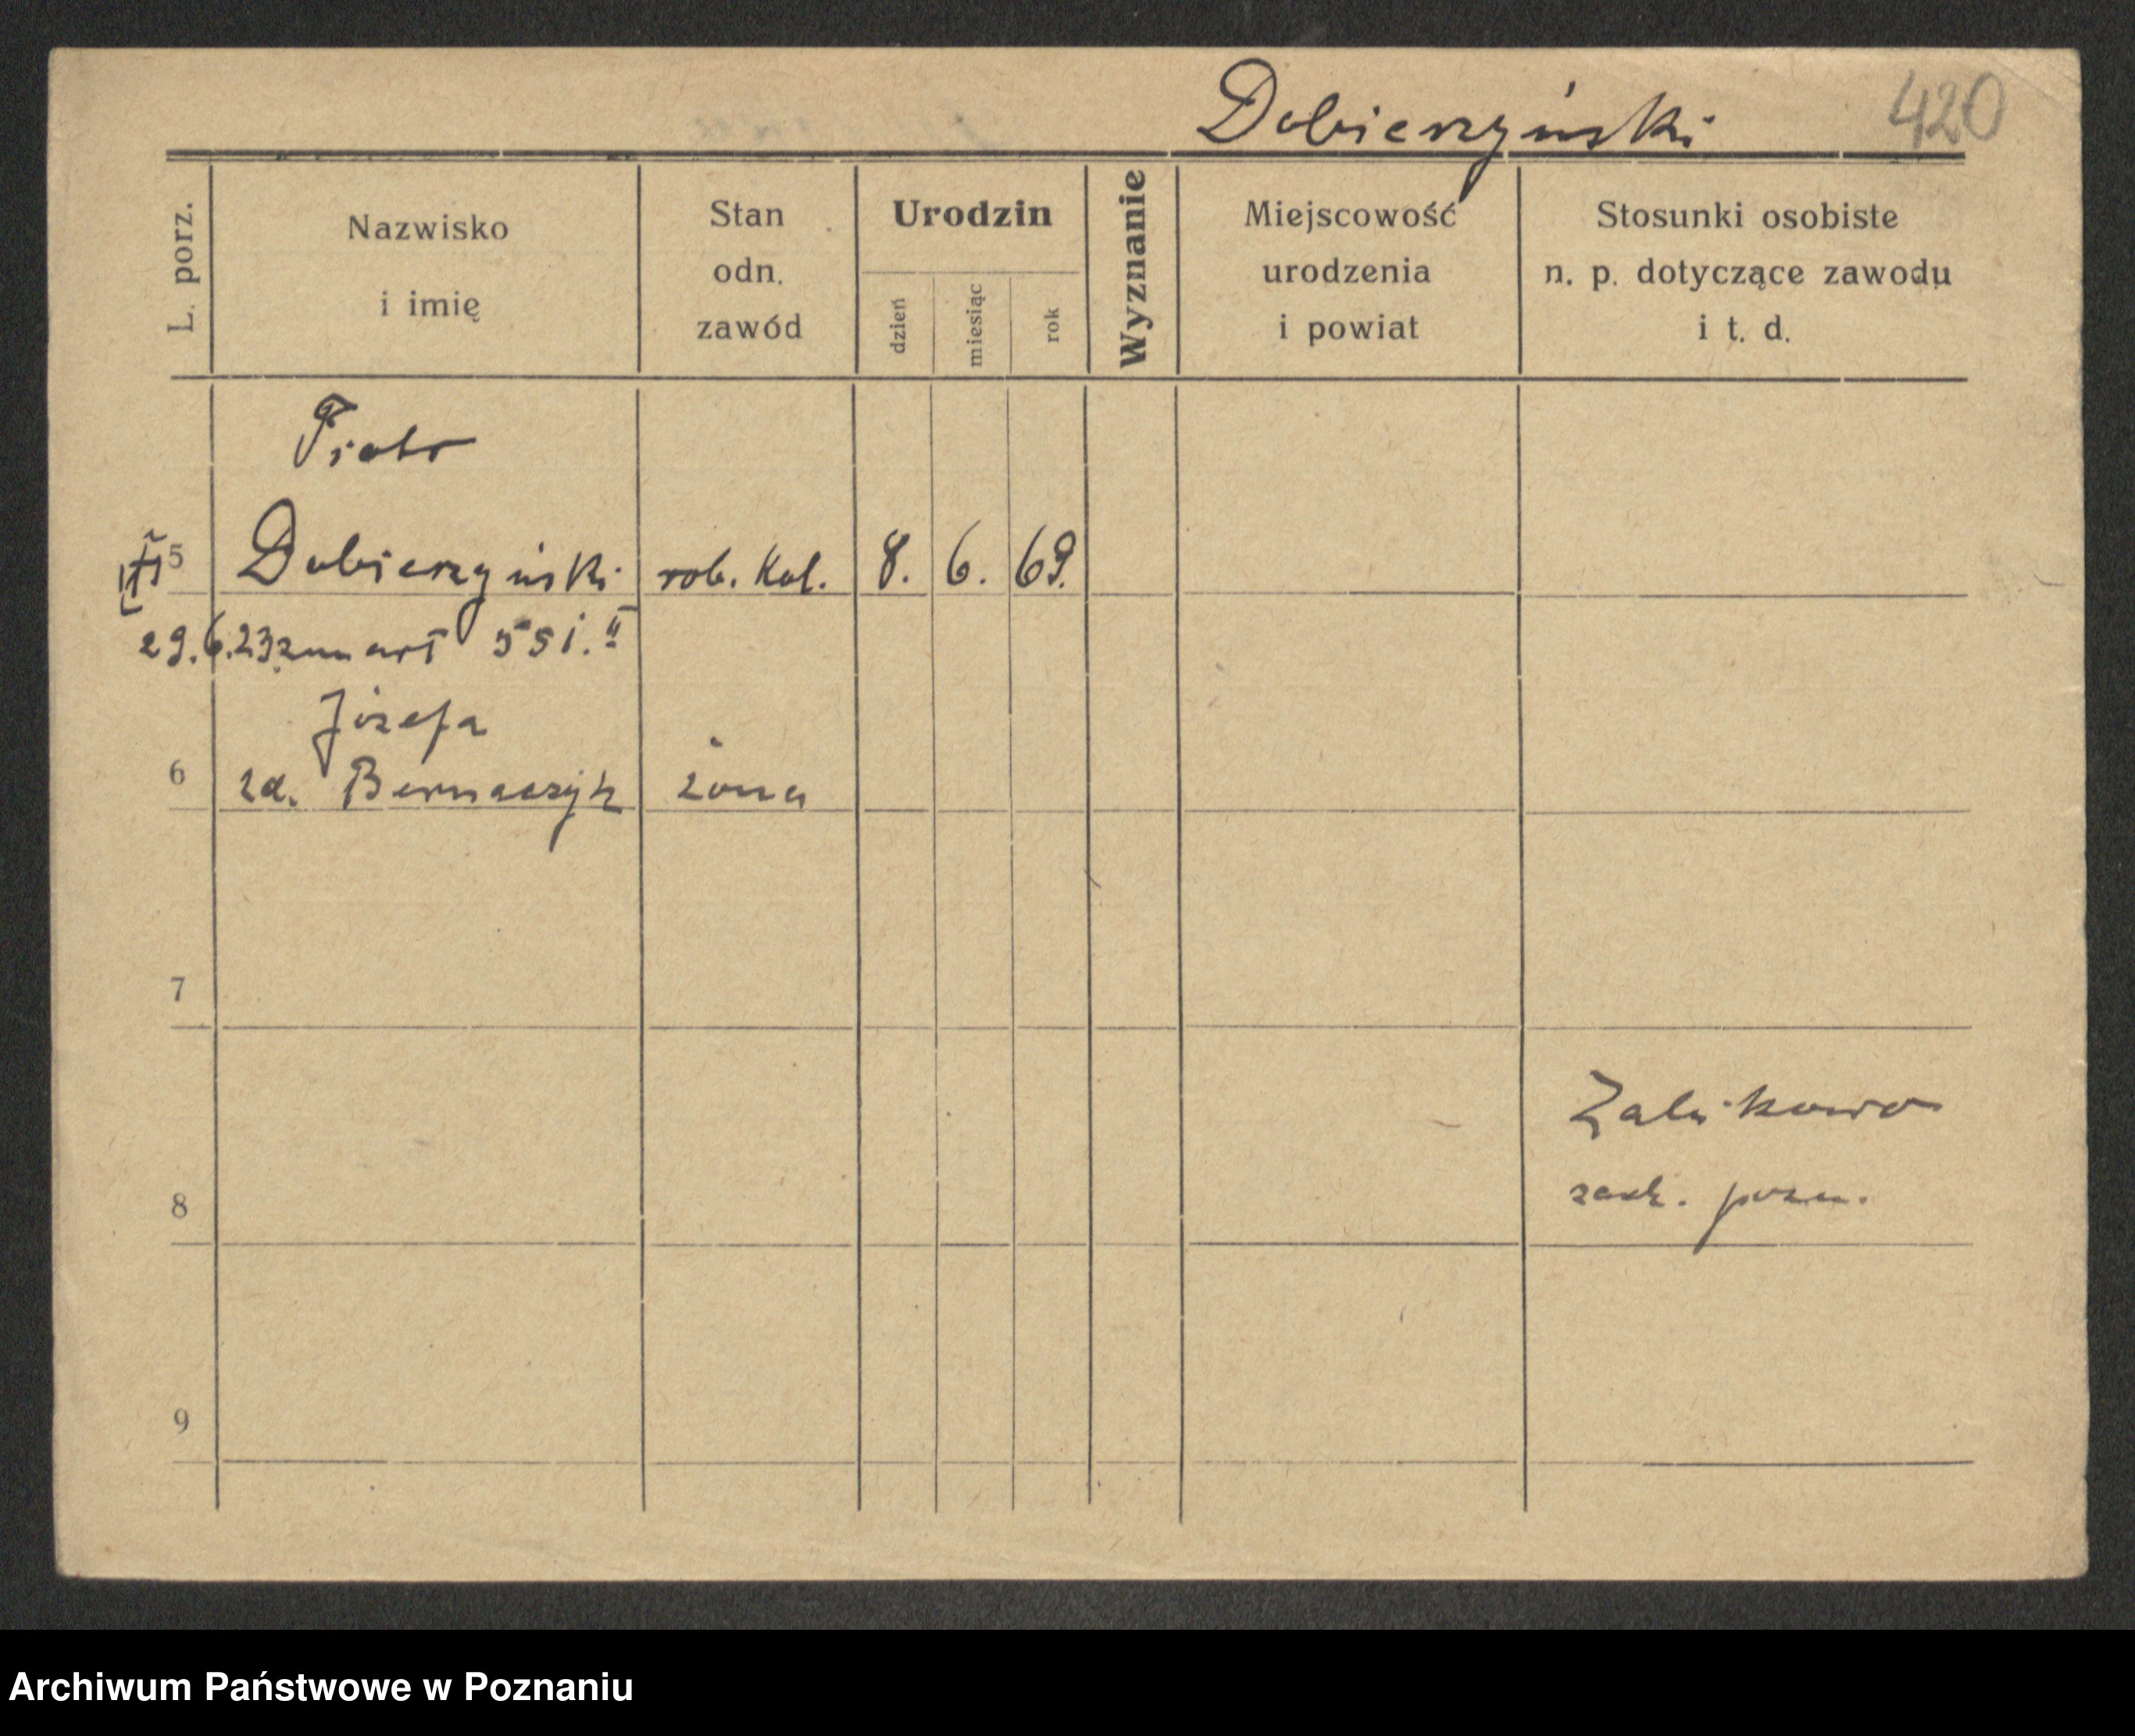 Dobierzyński 420
L. porz.
Nazwisko
i imię
Stan
odn.
zawód
Urodzin
dzień
miesiąc
rok
Wyznanie
Miejscowość
urodzenia
i powiat
Stosunki osobiste
n. p. dotyczące zawodu
i t. d.
Piotr
5 Dobierzyński rob. kol. 8. 6. 69.
29.6.23 zmarł 551. II
Józefa
6 zd. Bernaczyk żona
7
Żabikowo
8 pozn.
9
Archiwum Państwowe w Poznaniu